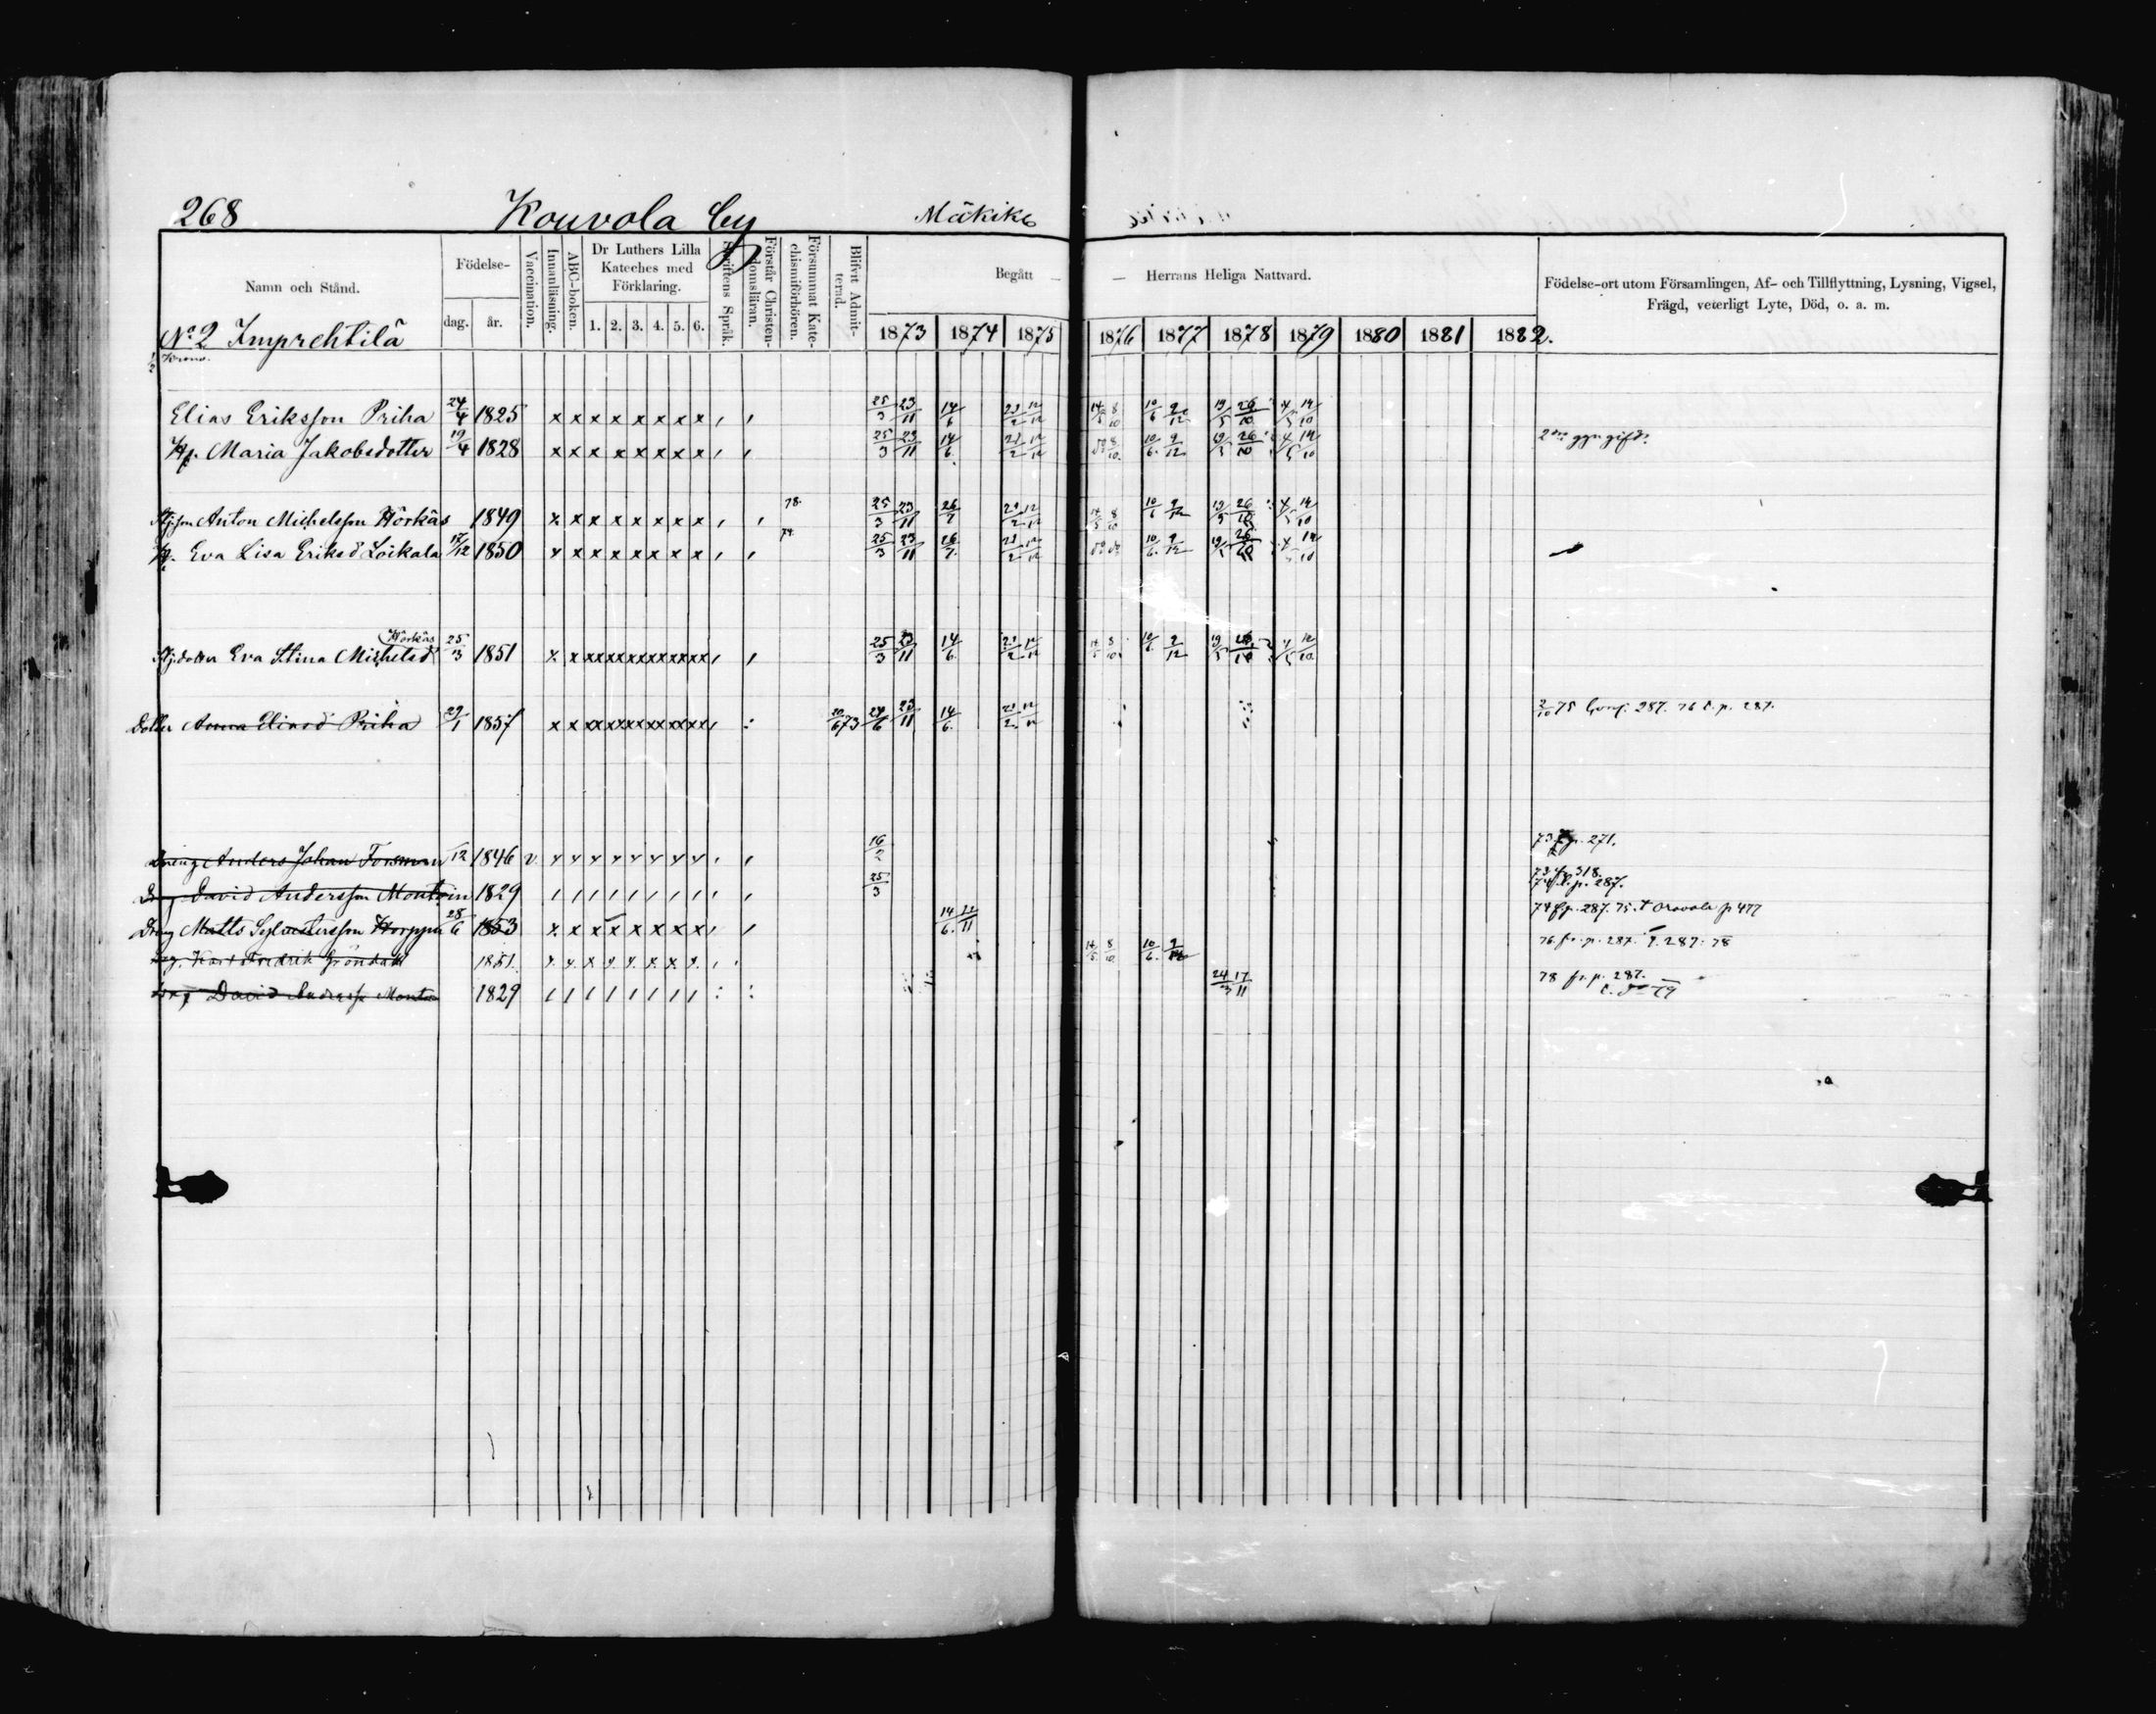 268 Kouvola by Mäkikö
Namn och Stånd. Födelse- dag. år. Vaccination. Innanläsning. ABC-boken. Dr Luthers Lilla Kateches med Förklaring. 1. 2. 3. 4. 5. 6. Skriftens Språk. Förstår Christendomsläran. Försummat Katechismiförhören. Blifvit Admitterad. Begått — — Herrans Heliga Nattvard. Födelse-ort utom Församlingen, Af- och Tillflyttning, Lysning, Vigsel, Frägd, veterligt Lyte, Död, o. a. m.
1873 1874 1875 1876 1877 1878 1879 1880 1881 1882.
No 2 Imprehtilä
1/2 Krono.
Elias Eriksson Priha 24/4 1825 x x x x x x x x , , 25/3 23/11 14/6 21/2 12/12 14/5 8/10 10/6 9/12 19/5 26/10 4/5 14/10
Hu. Maria Jakobsdotter 19/4 1828 x x x x x x x x , , 25/3 23/11 14/6. 21/2 12/12 do 8/10. 10/6. 9/12 19/5 26/10 4/5 14/10 gift
Anton Michelsson Hörkäs 1849 x x x x x x x x , , 78. 25/3 23/11 26/7 21/2 12/12 14/5 8/10 10/6 9/12 19/5 26/10 4/5 14/10
Eva Lisa Eriksd Loikala 17/12 1850 x x x x x x x x , , 74 25/3 23/11 26/7. 21/2 12/12 do do 10/6. 9/12 19/5 26/10 4/5 14/10
Hörkäs
Stjdotter Eva Stina Michelsd 25/3 1851 x x xx xx xx xx xx xx , , 25/3 23/11 14/6. 21/2 12/12 14/5 8/10 10/6 9/12 19/5 26/10 4/5 12/10
Dotter Anna Elinsd Priha 29/1 1857 x x xx xx xx xx xx xx , : 20/6 73 24/6 23/11 14/6. 21/2 12/12 2/10 75 287. 76 p. 287.
Dräng Anders Johan Forsman /12 1846 v. x x x x x x x x , , 16/2 73 p. 271.
David Andersson Montoin 1829 / / / / / / / / , , 25/3 73 318.
74 p. 287.
Dräng Matts Sylvestersson Horppu 28/6 1853 x x x x x x x x , , 14/6. 22/11 74 fr p. 287. 75. t Oravala p 477
Karl Fredrik Gröndahl 1851 x. x. x x. x. x. x x. , . 14/5 8/10 10/6. 9/12 76 fr. p. 287. 287. 78
David Anderss. Montoin 1829 / / / / / / / / : : 24/3 17/11 78 fr. p. 287.
79